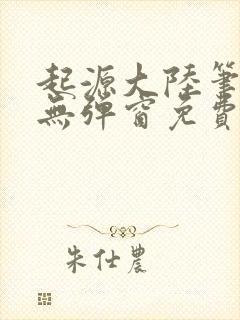 起源大陸筆
無彈窗免費
朱仕農